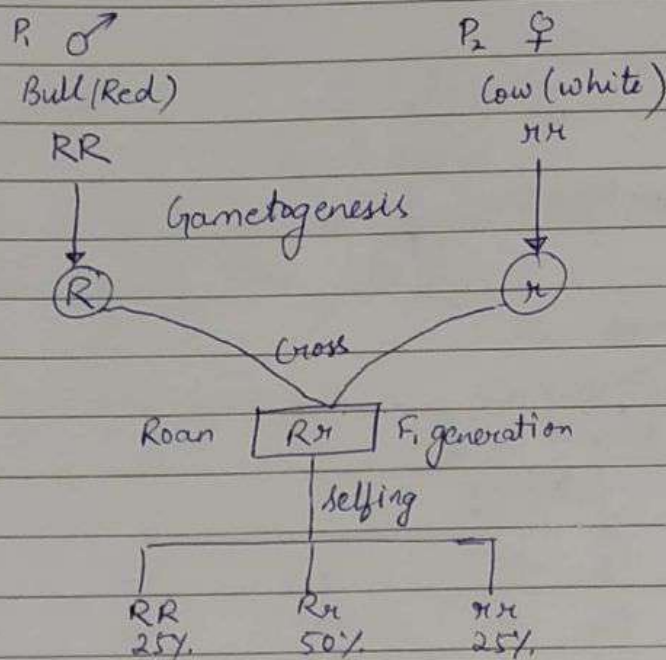 P1 ♂ P2 ♀
Bull (Red) Cow (white)
RR rr
Gametogenesis
R r
Cross
Roan Rr F1 generation
selfing
RR Rr rr
25% 50% 25%